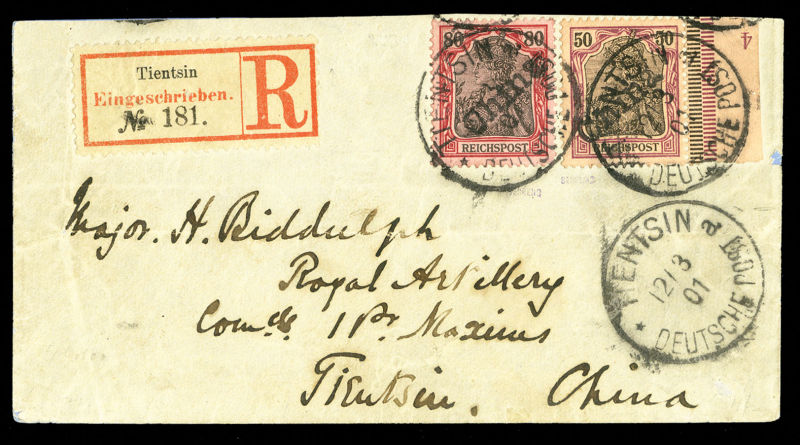 Tientsin
Eingeschrieben.
№ 181.
R
80 80
China
REICHSPOST
50 50
China
REICHSPOST
4
TIENTSIN a
DEUTSCHE POST
TIENTSIN a
3
01
DEUTSCHE POST
TIENTSIN a
12/3
01
* DEUTSCHE POST
Major. H. Biddulph
Royal Artillery
Comdg 1 Pr. Maxims
Tientsin. China